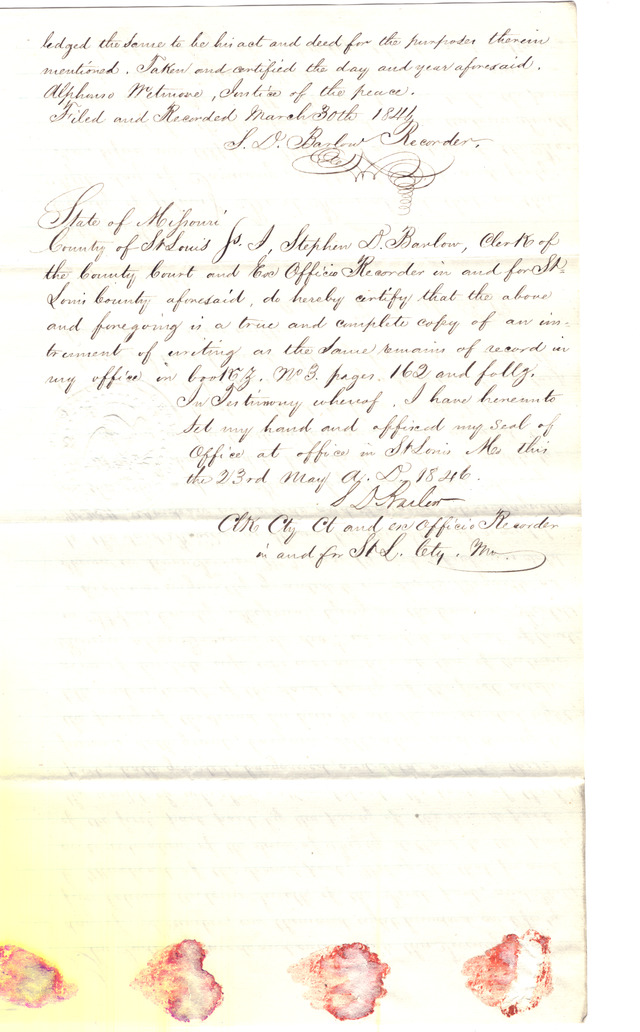 ledged the same to be his act and deed for the purposes therein
mentioned. Taken and certified the day and year aforesaid.
Alphonso Wetmore, Justice of the peace.
Filed and Recorded March 30th 1844
S. D. Barlow Recorder.
State of Missouri
County of St Louis Ss. I, Stephen D. Barlow, Clerk of
the County Court and Ex Officio Recorder in and for St-
Louis County aforesaid, do hereby certify that the above
and foregoing is a true and complete copy of an ins-
trument of writing as the same remains of record in
my office in book Z. No 3. pages. 162 and follg.
In Testimony whereof, I have hereunto
set my hand and affixed my seal of
Office at office in St Louis Mo this
the 23rd May A. D. 1846.
S D Barlow
Clk Cty Ct and ex Officio Recorder
in and for St L. Cty. Mo